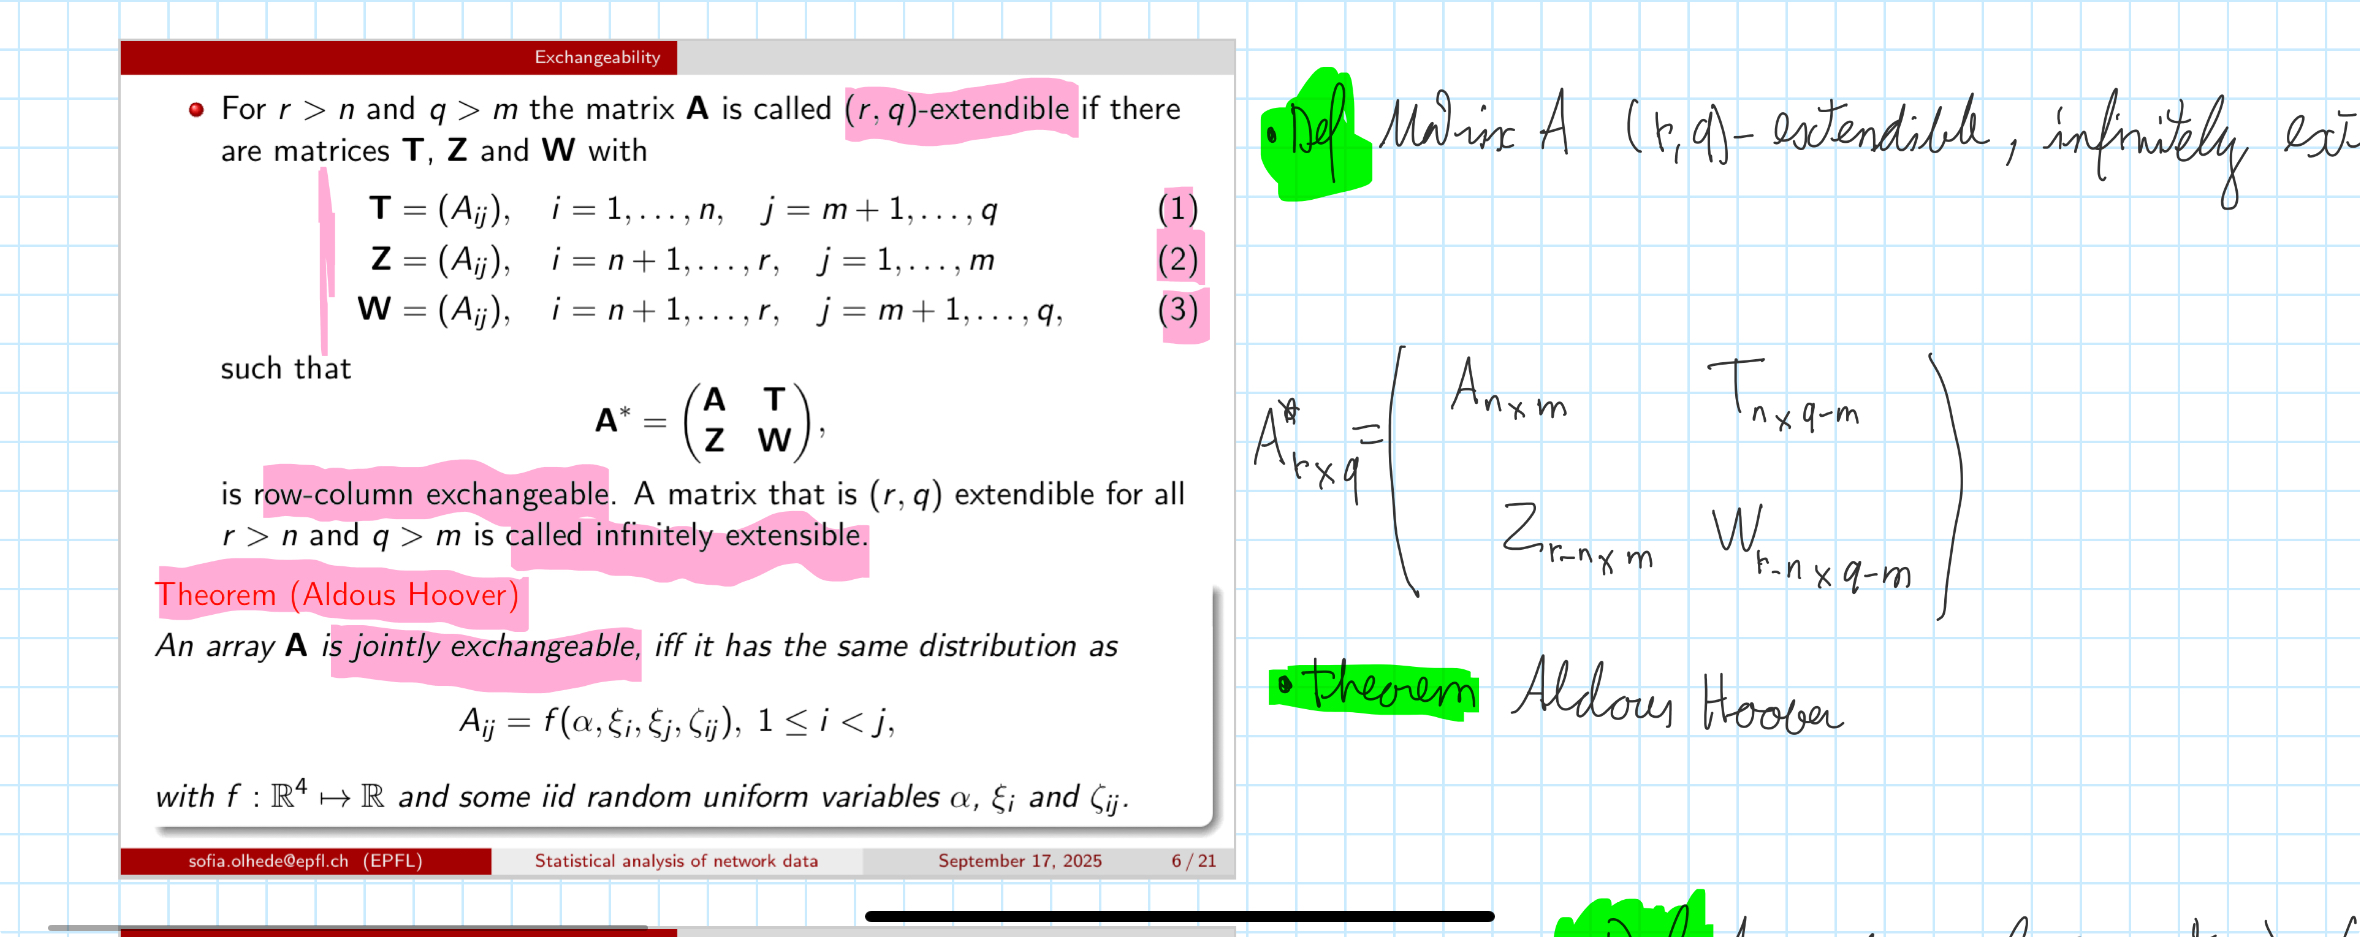 Exchangeability
For r > n and q > m the matrix A is called (r, q)-extendible if there
are matrices T, Z and W with
T = (A_ij), i = 1, . . . , n, j = m + 1, . . . , q (1)
Z = (A_ij), i = n + 1, . . . , r, j = 1, . . . , m (2)
W = (A_ij), i = n + 1, . . . , r, j = m + 1, . . . , q, (3)
such that
A* = (A T
Z W),
is row-column exchangeable. A matrix that is (r, q) extendible for all
r > n and q > m is called infinitely extensible.
Theorem (Aldous Hoover)
An array A is jointly exchangeable, iff it has the same distribution as
A_ij = f(α, ξ_i, ξ_j, ζ_ij), 1 ≤ i < j,
with f : ℝ⁴ ↦ ℝ and some iid random uniform variables α, ξ_i and ζ_ij.
sofia.olhede@epfl.ch (EPFL) Statistical analysis of network data September 17, 2025 6 / 21
• Def Matrix A (r,q)- extendible, infinitely ext
A*_r×q = (A_n×m T_n×q-m
Z_r-n×m W_r-n×q-m)
• theorem Aldous Hoover